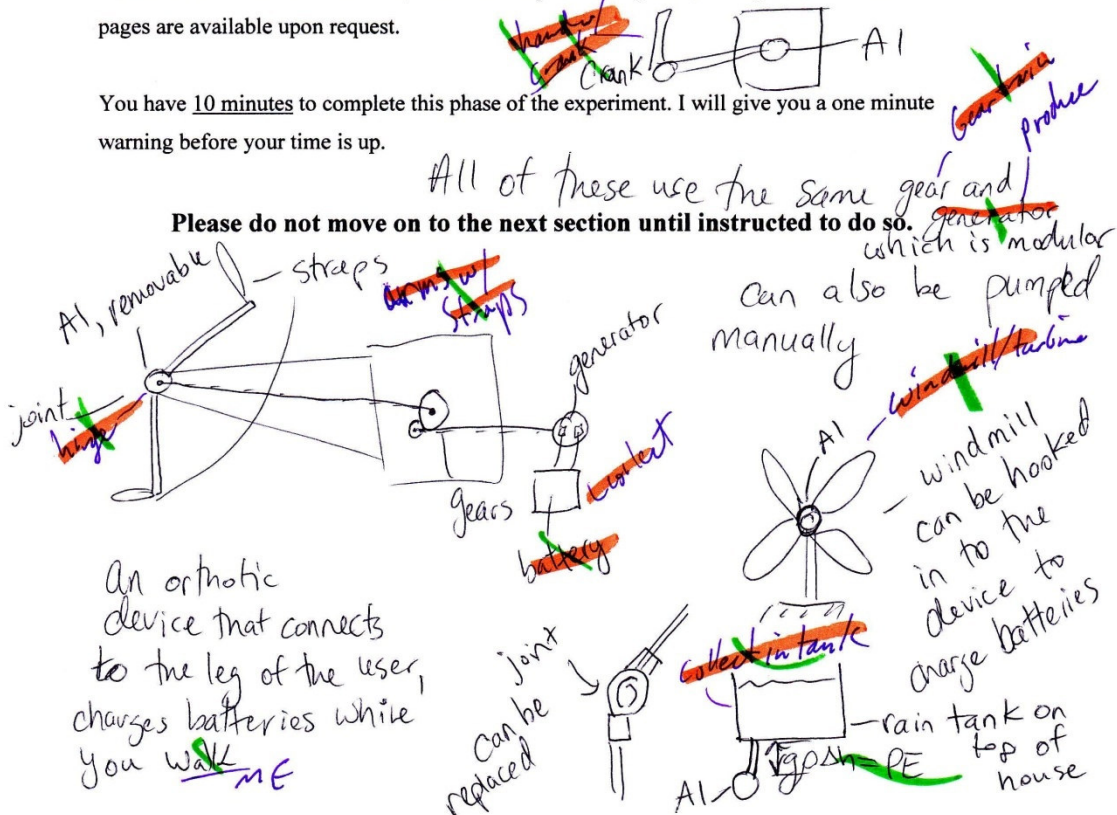 pages are available upon request.
hand w/
crank
Crank
A1
You have 10 minutes to complete this phase of the experiment. I will give you a one minute
warning before your time is up.
Gear train
produce
All of these use the same gear and
generator
which is modular
Please do not move on to the next section until instructed to do so.
can also be pumped
manually
A1, removable
straps
arms w/
straps
generator
joint
hinge
gears
collect
battery
windmill/turbine
A1
windmill
can be hooked
in to the
device to
charge batteries
An orthotic
device that connects
to the leg of the user,
charges batteries while
you walk
ME
joint
can be
replaced
collect in tank
rain tank on
top of
house
gρΔh = PE
A1